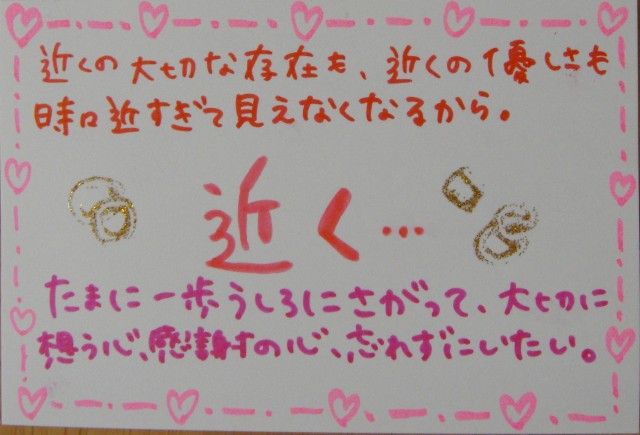 近くの大切な存在も、近くの優しさも
時々近すぎて見えなくなるから。
近く…
たまに一歩うしろにさがって、大切に
想う心、感謝の心、忘れずにいたい。